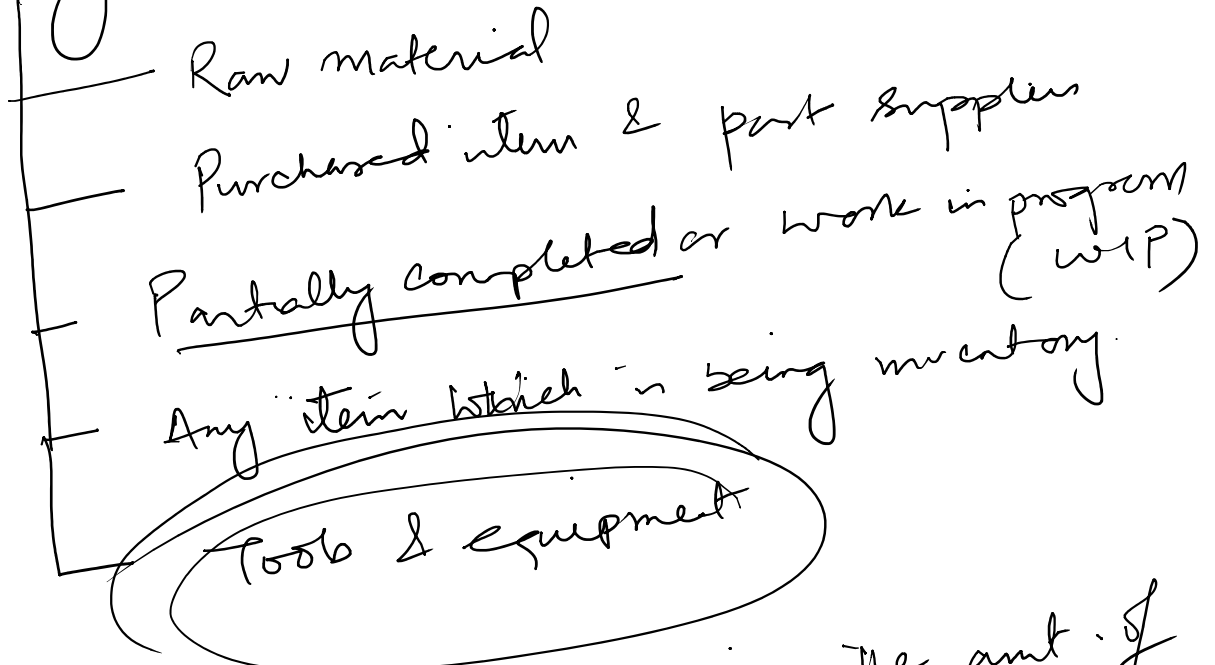 Raw material
Purchased item & part supplies
Partially completed or work in progress
(WIP)
Any item which is being inventory
Tools & equipment
The amt. of